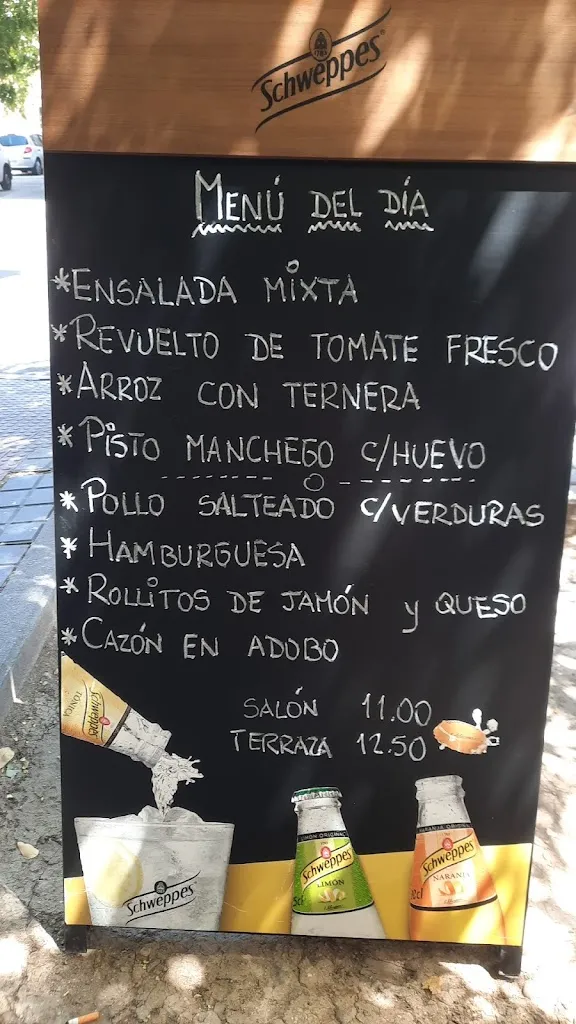 Schweppes
MENÚ DEL DÍA
*ENSALADA MIXTA
*REVUELTO DE TOMATE FRESCO
*ARROZ CON TERNERA
*PISTO MANCHEGO C/HUEVO
*POLLO SALTEADO C/VERDURAS
*HAMBURGUESA
*ROLLITOS DE JAMÓN y QUESO
*CAZÓN EN ADOBO
SALÓN 11.00
TERRAZA 12.50
Schweppes
TÓNICA
Schweppes
LIMÓN ORIGINAL
Schweppes
LIMÓN
NARANJA ORIGINAL
Schweppes
NARANJA